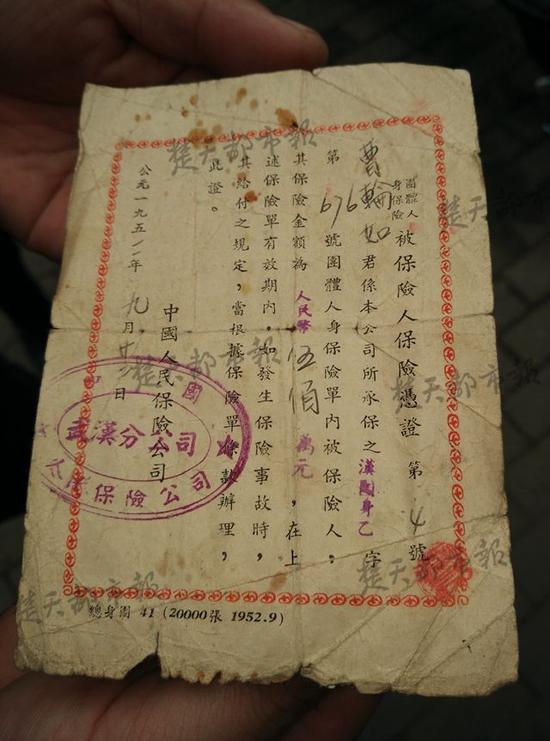 團體人身保險被保險人保險憑證 第4號
曹輪如君係本公司所承保之漢團身乙字
第676號團體人身保險單內被保險人,
其保險金額為人民幣伍佰萬元,在上
述保險單有效期內,如發生保險事故時,
其給付之規定,當根據保險單條款辦理,
此證。
中國人民保險公司
公元一九五二年九月廿 日
中 國
武漢分公司
人民保險公司
總身團 41 (20000張 1952.9)
楚天都市報
楚天都市報
楚天都市報
楚天都市報
楚天都市報
楚天都市報